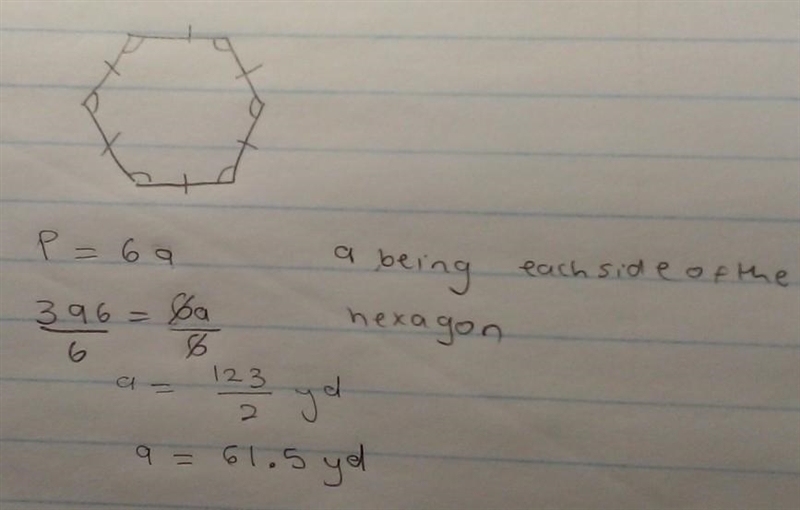 P = 6a a being each side of the
396/6 = 6a/6 hexagon
a = 123/2 yd
a = 61.5 yd